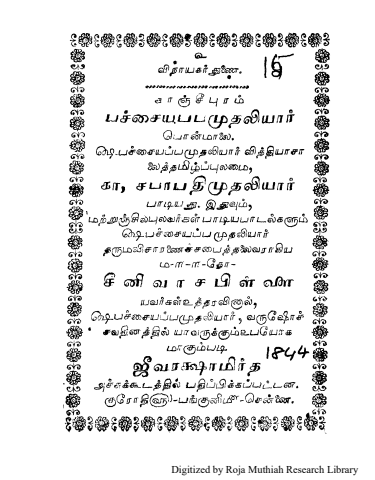 உ
விநாயகர் துணை.
15
காஞ்சீபுரம்
பச்சையபபமுதலியார்
பொன்மாலை.
ஷெ.பச்சையப்பமுதலியார் வித்தியாசா
லைத்தமிழ்ப்புலமை,
கா, சபாபதிமுதலியார்
பாடியது. இதுவும்,
மற்றுஞ்சிலபுலவர்கள் பாடியபாடல்களும்
ஷெ.பச்சையப்பமுதலியார்
தருமவிசாரணைச்சபைத்தலைவராகிய
ம-ா-ா-ஸ்ரீ
சீனிவாசபிள்ளை
யவர்கள் உத்தரவினால்,
ஷெ.பச்சையப்பமுதலியார், வருஷோச்
சவதினத்தில் யாவருக்கும் உபயோக
மாகும்படி.
1844
ஜீவரக்ஷாமிர்த
அச்சுக்கூடத்தில் பதிப்பிக்கப்பட்டன.
குரோதி-பங்குனி-சென்னை.
Digitized by Roja Muthiah Research Library